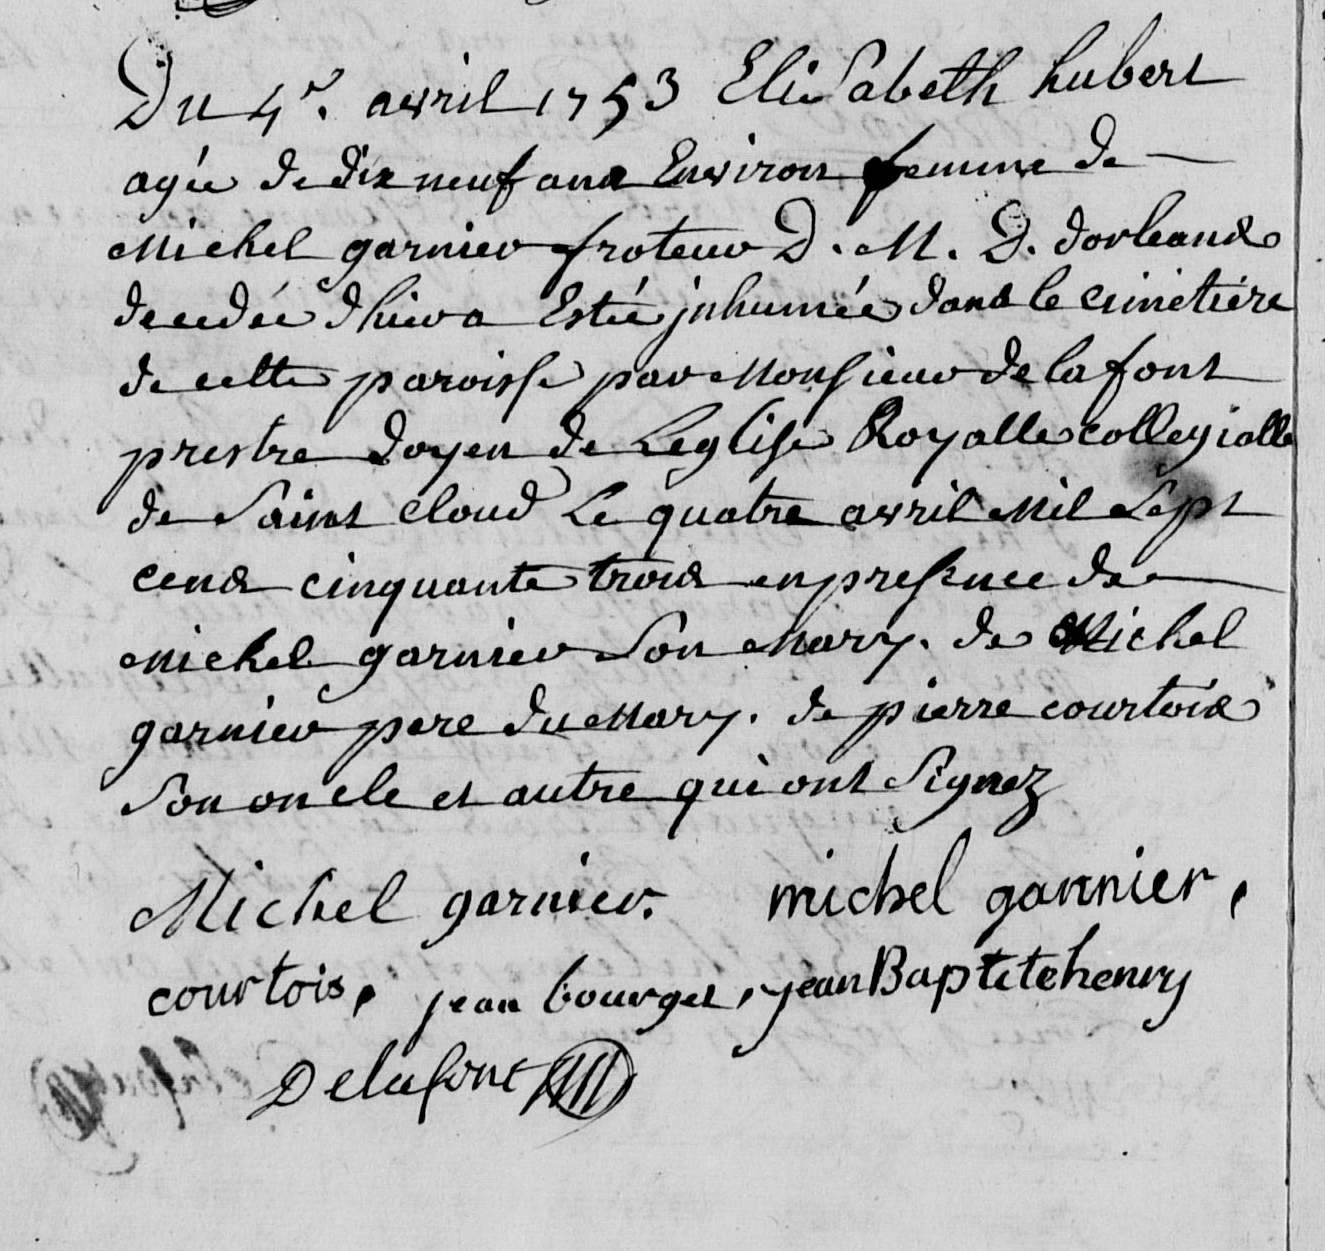 Du 4e. avril 1753 Elisabeth hubert
agée de dix neuf ans Environ femme de
Michel garnier froteur D. M. D. dorleans
decedée d'hier a Esté jnhumée dans le cimetiere
de cette paroisse par Monsieur de lafont
prestre doyen de Leglise Royalle collegialle
de Saint Cloud Le quatre avril Mil Sept
cens cinquante trois en presence de
michel garnier Son Mary. de Michel
garnier pere du Mary. de pierre courtois
Son oncle et autre qui ont Signez
Michel garnier. michel garnier,
courtois, jean bourget, jean Baptite henry
Delafont